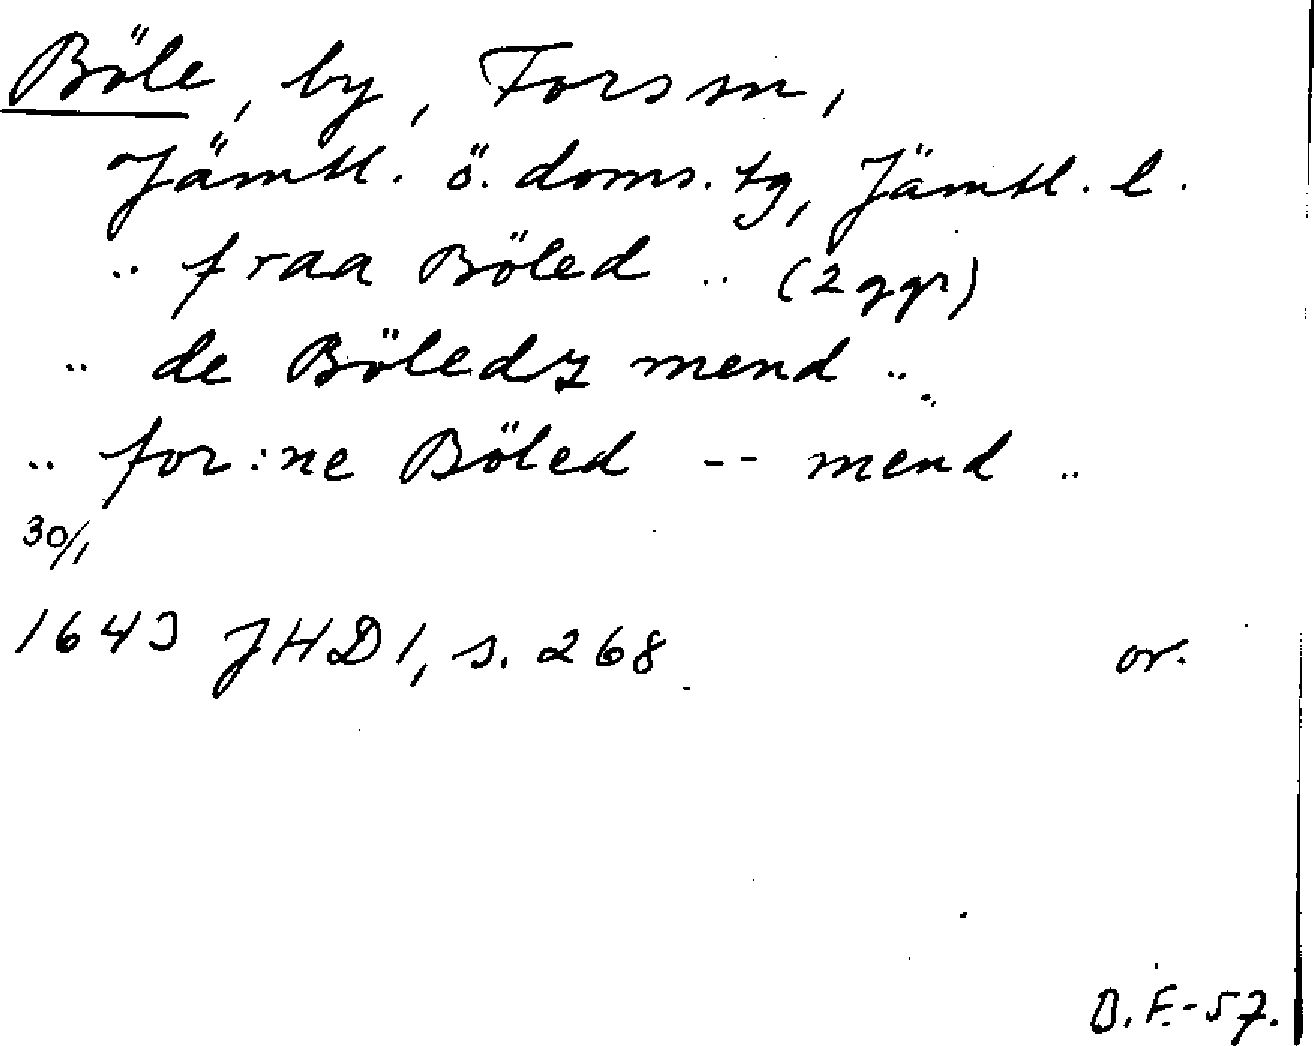 Böle, by, Fors sn,
Jämtl. ö. doms. tg, Jämtl. l.
.. fraa Böled .. (2 ggr)
.. de Böledz mend ..
.. for:ne Böled -- mend ..
30/1
1643 JHD 1, s. 268 or.
B.F.-57.